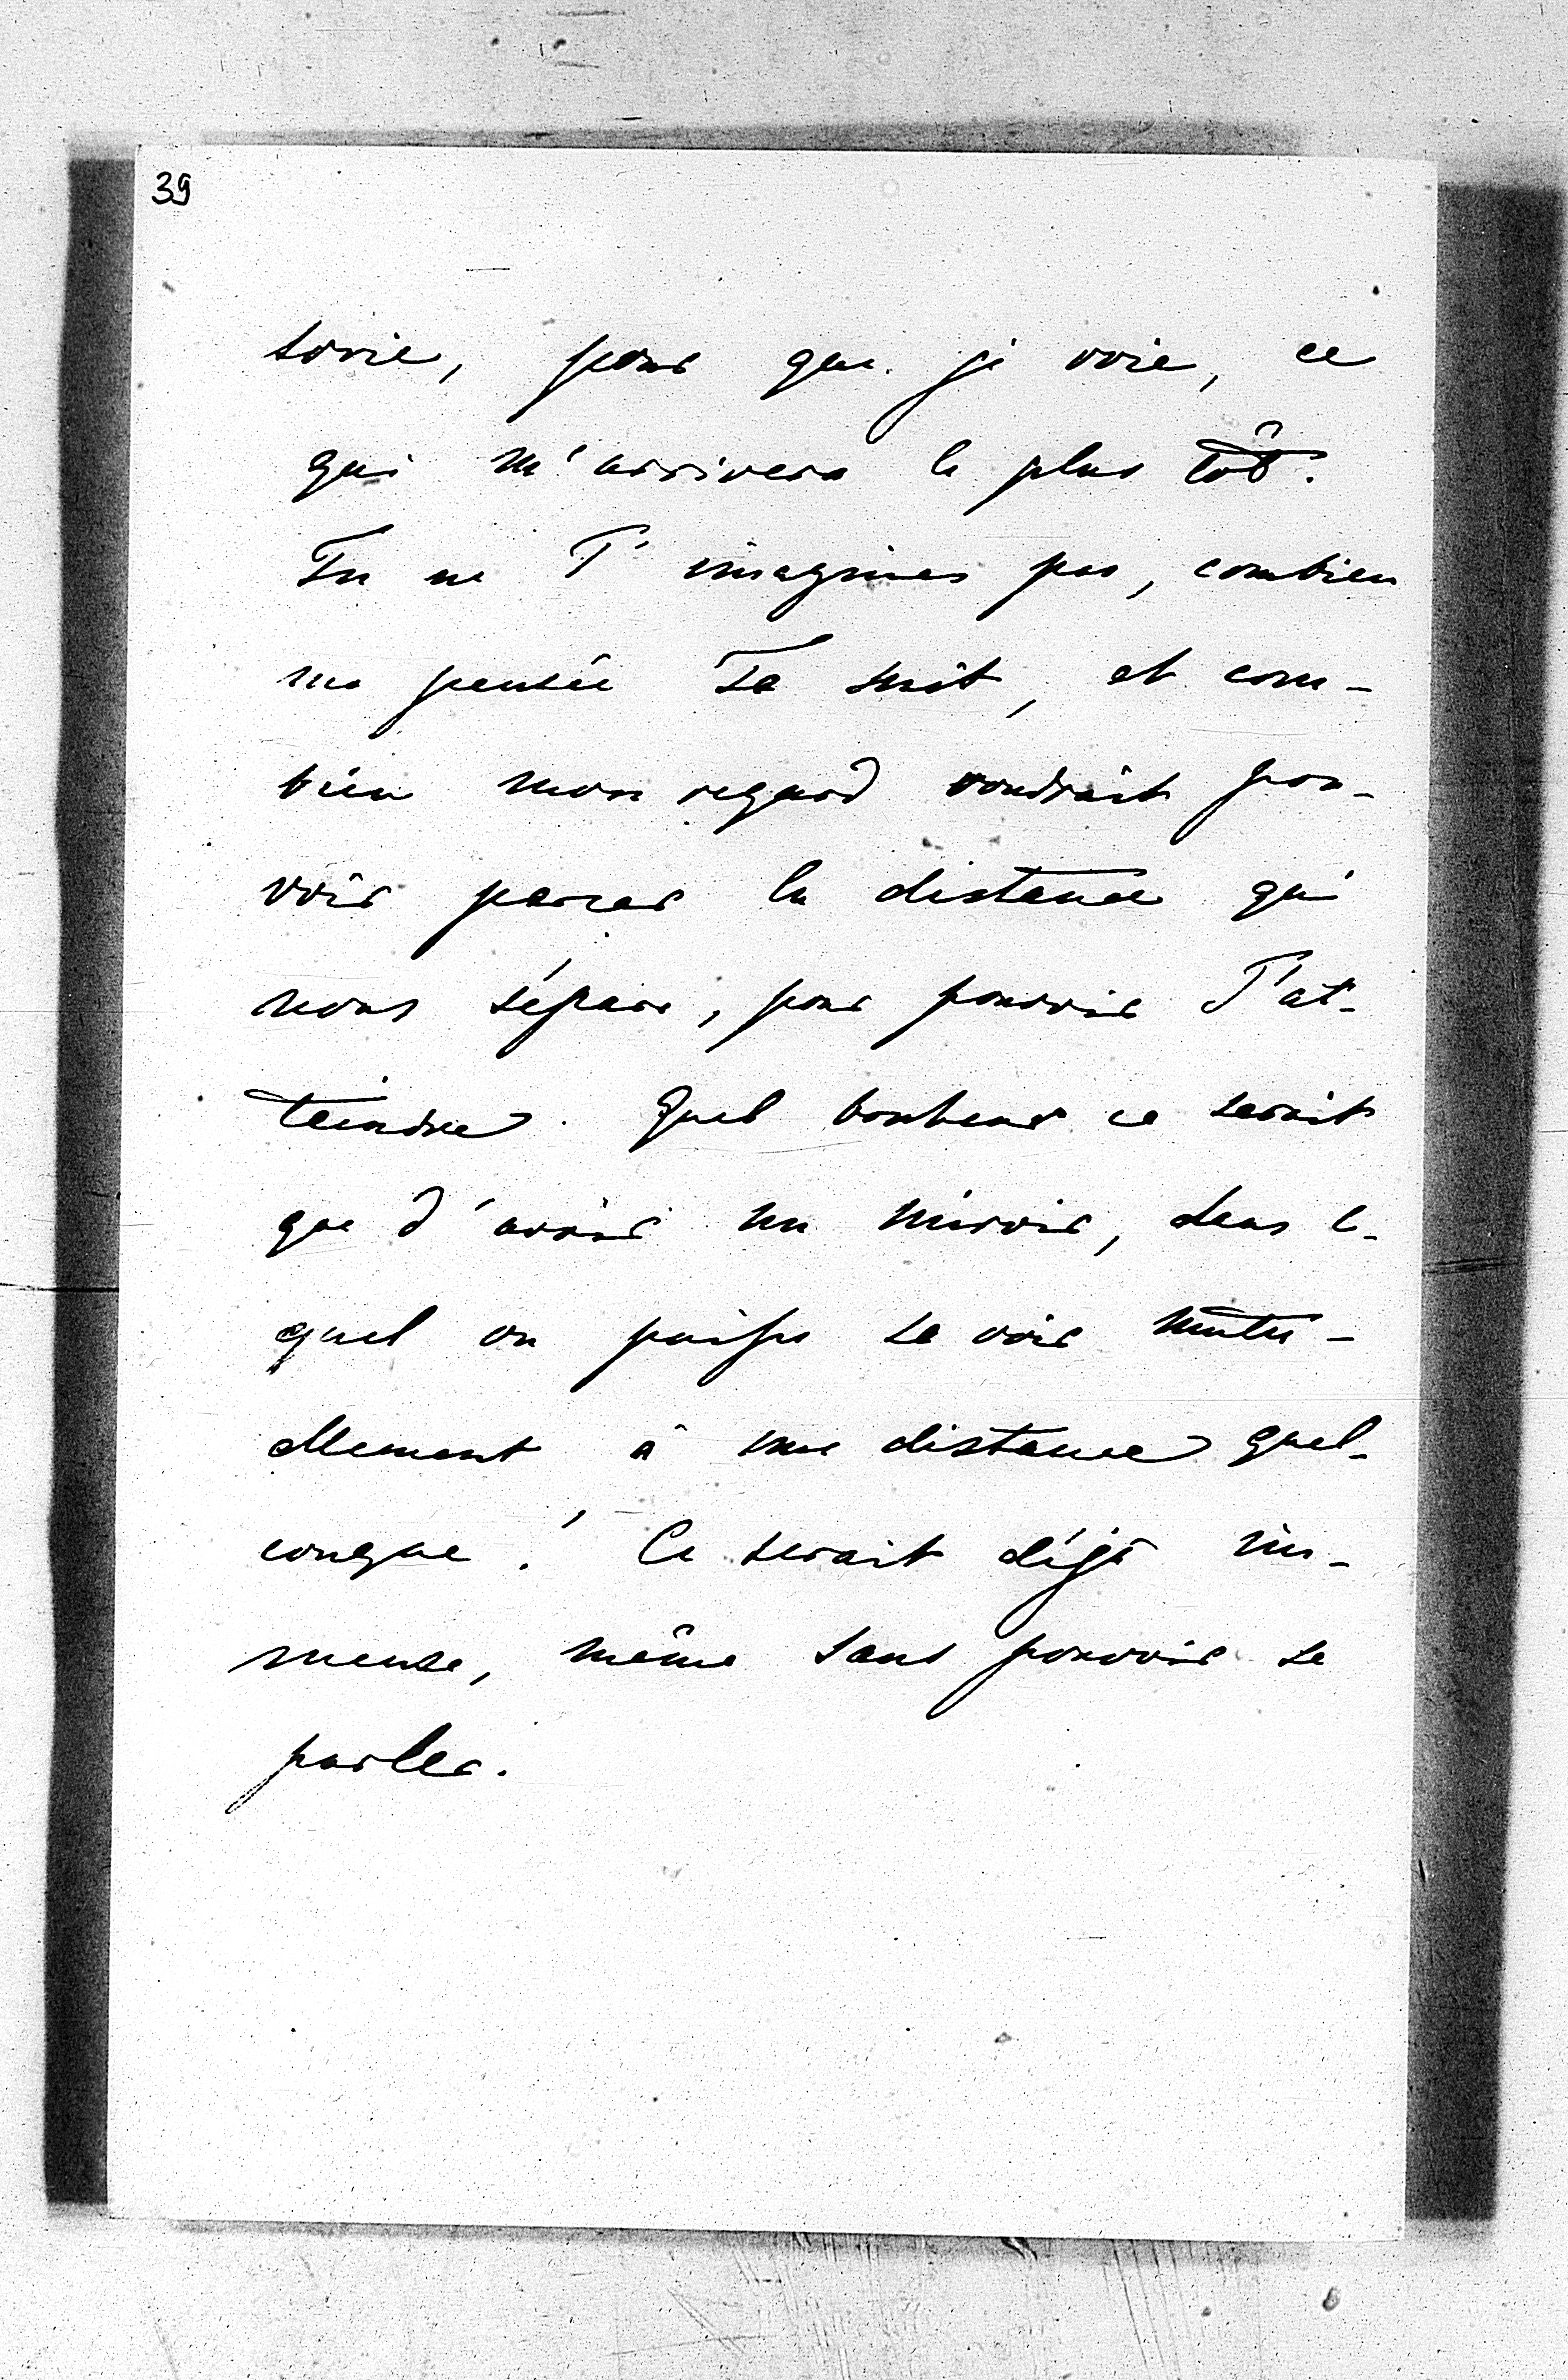 39
sovie, pour que je voie, ce
qui m'arrivera le plus tôt.
Tu ne T'imagines pas, combien
ma pensée Te suit, et com-
bien mon regard voudrait pou-
voir percer la distance qui
nous sépare, pour pouvoir T'at-
teindre. Quel bonheur ce serait
que d'avoir un miroir, dans le-
quel on puisse se voir mutu-
ellement à une distance quel-
conque! Ce serait déjà im-
mense, même sans pouvoir se
parler.